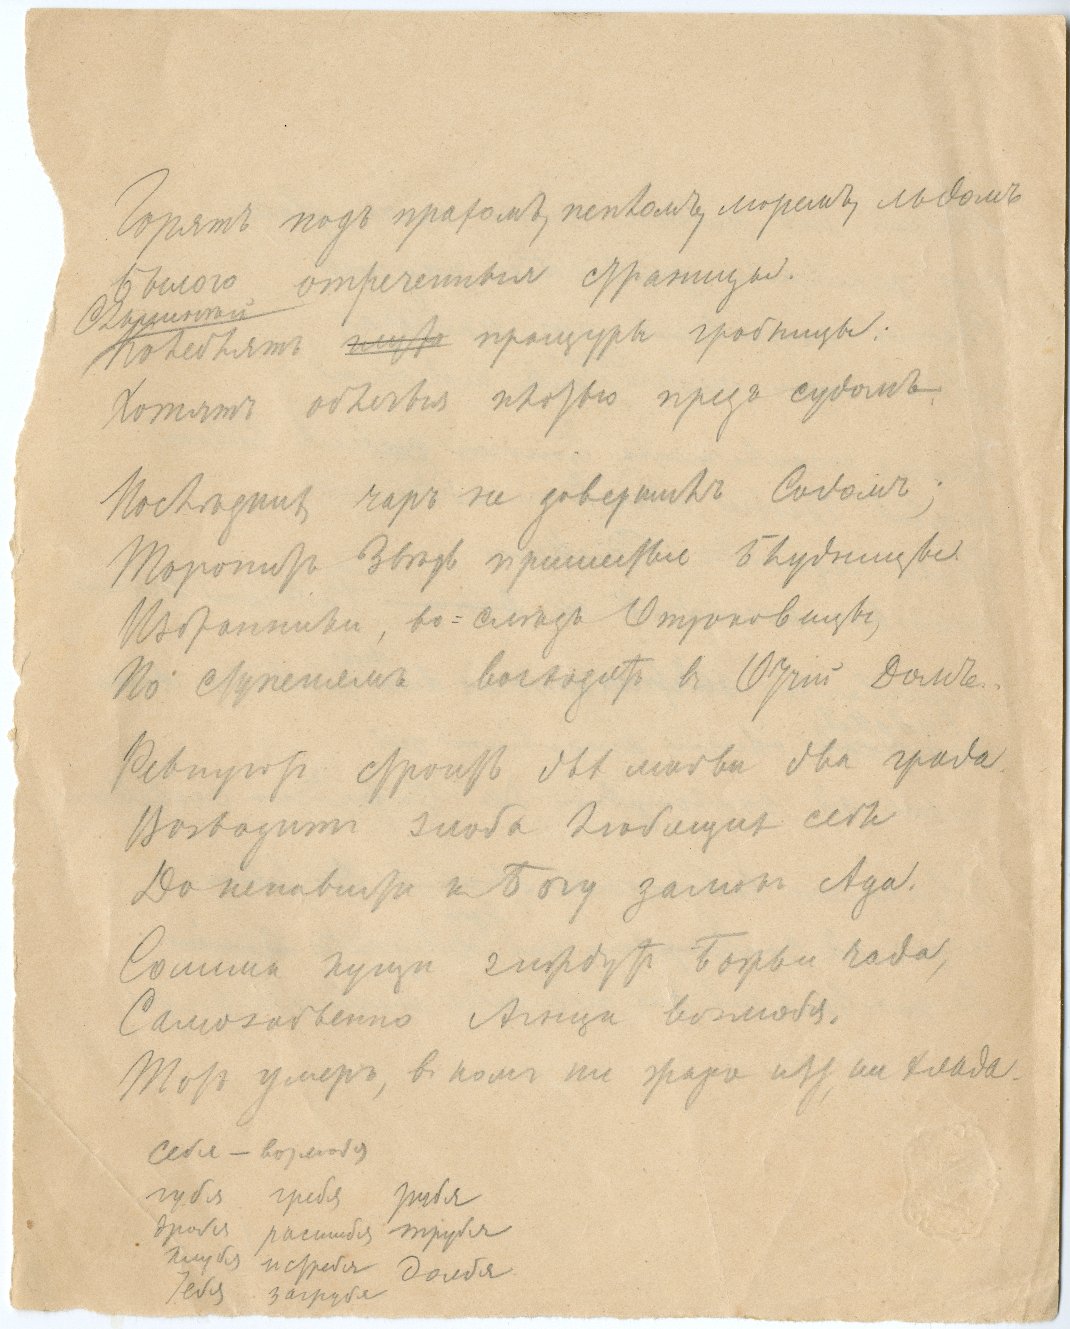 Горятъ подъ прахомъ, пепломъ, моремъ, льдомъ
Былого отреченныя страницы.
Колеблятъ глухо пращуры гробницы:
Хотятъ облечься плотью предъ судомъ.
Послѣднихъ чаръ не довершилъ Содомъ;
Торопитъ Звѣрь пришествіе Блудницы.
Избранники, во-слѣдъ Отроковицы,
По ступенямъ восходятъ въ Отчій Домъ.
Ревнуютъ строить двѣ любви два града.
Возводитъ злоба любящихъ себя
До ненависти къ Богу замокъ Ада.
Солима кущи зиждутъ Божьи чада,
Самозабвенно Агнца возлюбя.
Тотъ умеръ, въ комъ ни жара нѣтъ, ни хлада.
себя — возлюбя
губя гребя рубя
дробя расшибя трубя
клубя истребя долбя
тебя загрубя